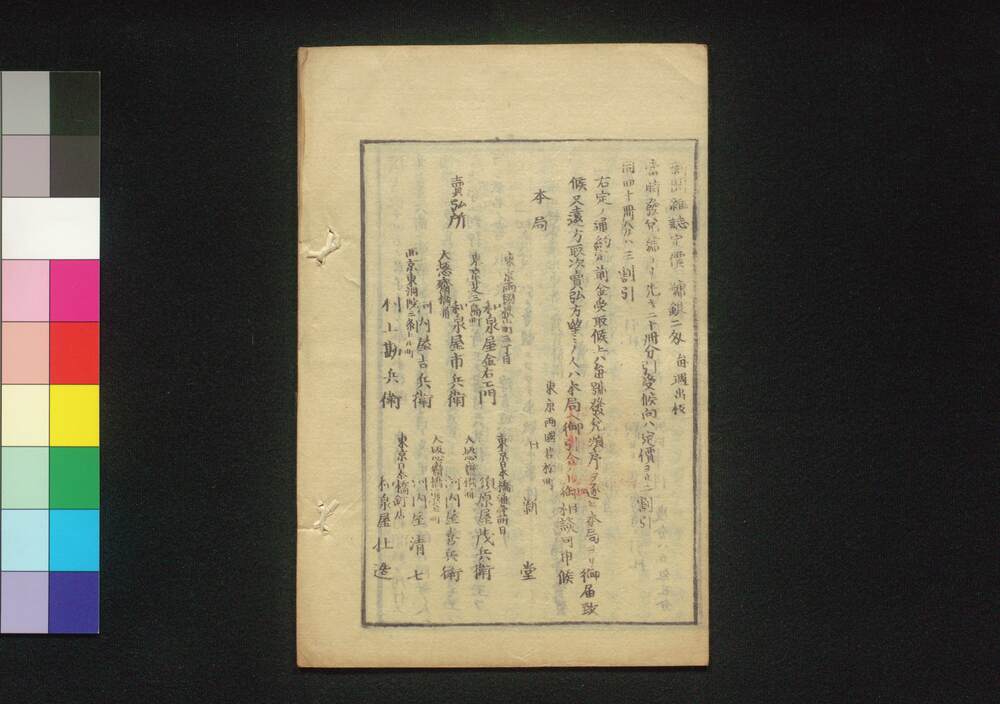 雜誌定價一號銀二匁 毎週出板
發兌號ヨリ先キ二十冊分引受候向ハ定價ヨリ二割引
同四十冊分ハ三割引
右定ノ通約定前金受取候上ハ毎號發兌順序ヲ逐ヒ本局ヨリ御届致
候又遠方取次賣弘方望ミノ人ハ本局ヘ御引合御相談可申候
本局
東京兩國若松町
日新堂
賣弘所
東京兩國橫山町三丁目
和泉屋金右エ門
東京芝三島町
和泉屋市兵衛
大坂心齋橋
河内屋吉兵衛
西京東洞院三条上ル町
村上勘兵衛
東京日本橋通壹町目
須原屋茂兵衛
大坂心齋橋
河内屋喜兵衛
大坂心齋橋
河内屋清七
東京日本橋釘店
和泉屋壮造